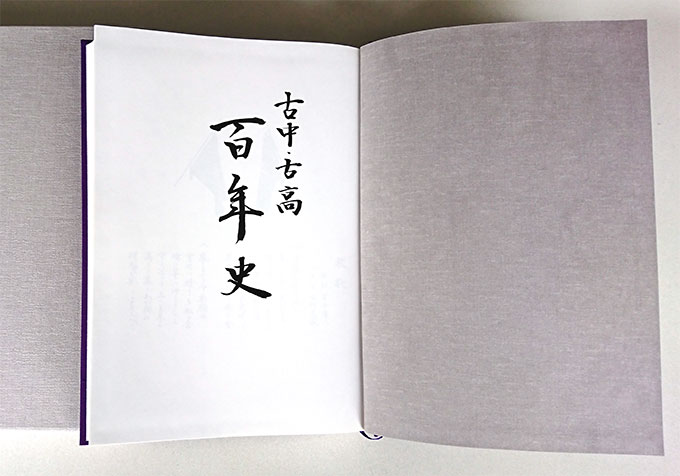 古中・古高
百年史